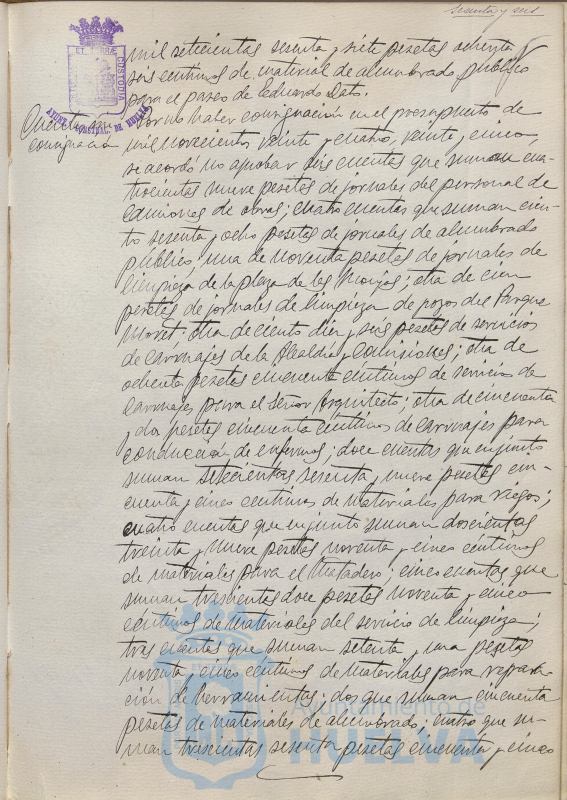 sesenta y seis
mil setecientas sesenta y siete pesetas ochenta y
seis centimos de material de alumbrado público
para el paseo de Eduardo Dato.
Cuentas sin
consignación
Por no haber consignación en el presupuesto de
mil novecientos veinte y cuatro, veinte y cinco,
se acordó no aprobar seis cuentas que suman cua-
trocientas nueve pesetas de jornales del personal de
Camiones de obras; cuatro cuentas que suman cien-
to sesenta y ocho pesetas de jornales de alumbrado
público, una de noventa pesetas de jornales de
limpieza de la plaza de las Monjas; otra de cien
pesetas de jornales de limpieza de pozos del Parque
Moret; otra de ciento diez y seis pesetas de servicios
de carruajes de la Alcaldía y Comisiones; otra de
ochenta pesetas cincuenta centimos de servicio de
Carruajes para el Señor Arquitecto; otra de cincuenta
y dos pesetas cincuenta centimos de carruajes para
conducción de enfermos; doce cuentas que en junto
suman setecientas sesenta y nueve pesetas cin-
cuenta y cinco centimos de materiales para riegos;
cuatro cuentas que en junto suman doscientas
treinta y nueve pesetas noventa y cinco centimos
de materiales para el Matadero; cinco cuentas que
suman trescientas doce pesetas noventa y cinco
centimos de materiales del servicio de limpieza;
tres cuentas que suman setenta y una pesetas
noventa y cinco centimos de materiales para repara-
ción de herramientas; dos que suman cincuenta
pesetas de materiales de alumbrado; cuatro que su-
man trescientas sesenta pesetas cincuenta y cinco
AYUNT. CONSTNAL. DE HUELVA
CUSTODIA
Ayuntamiento de
HUELVA